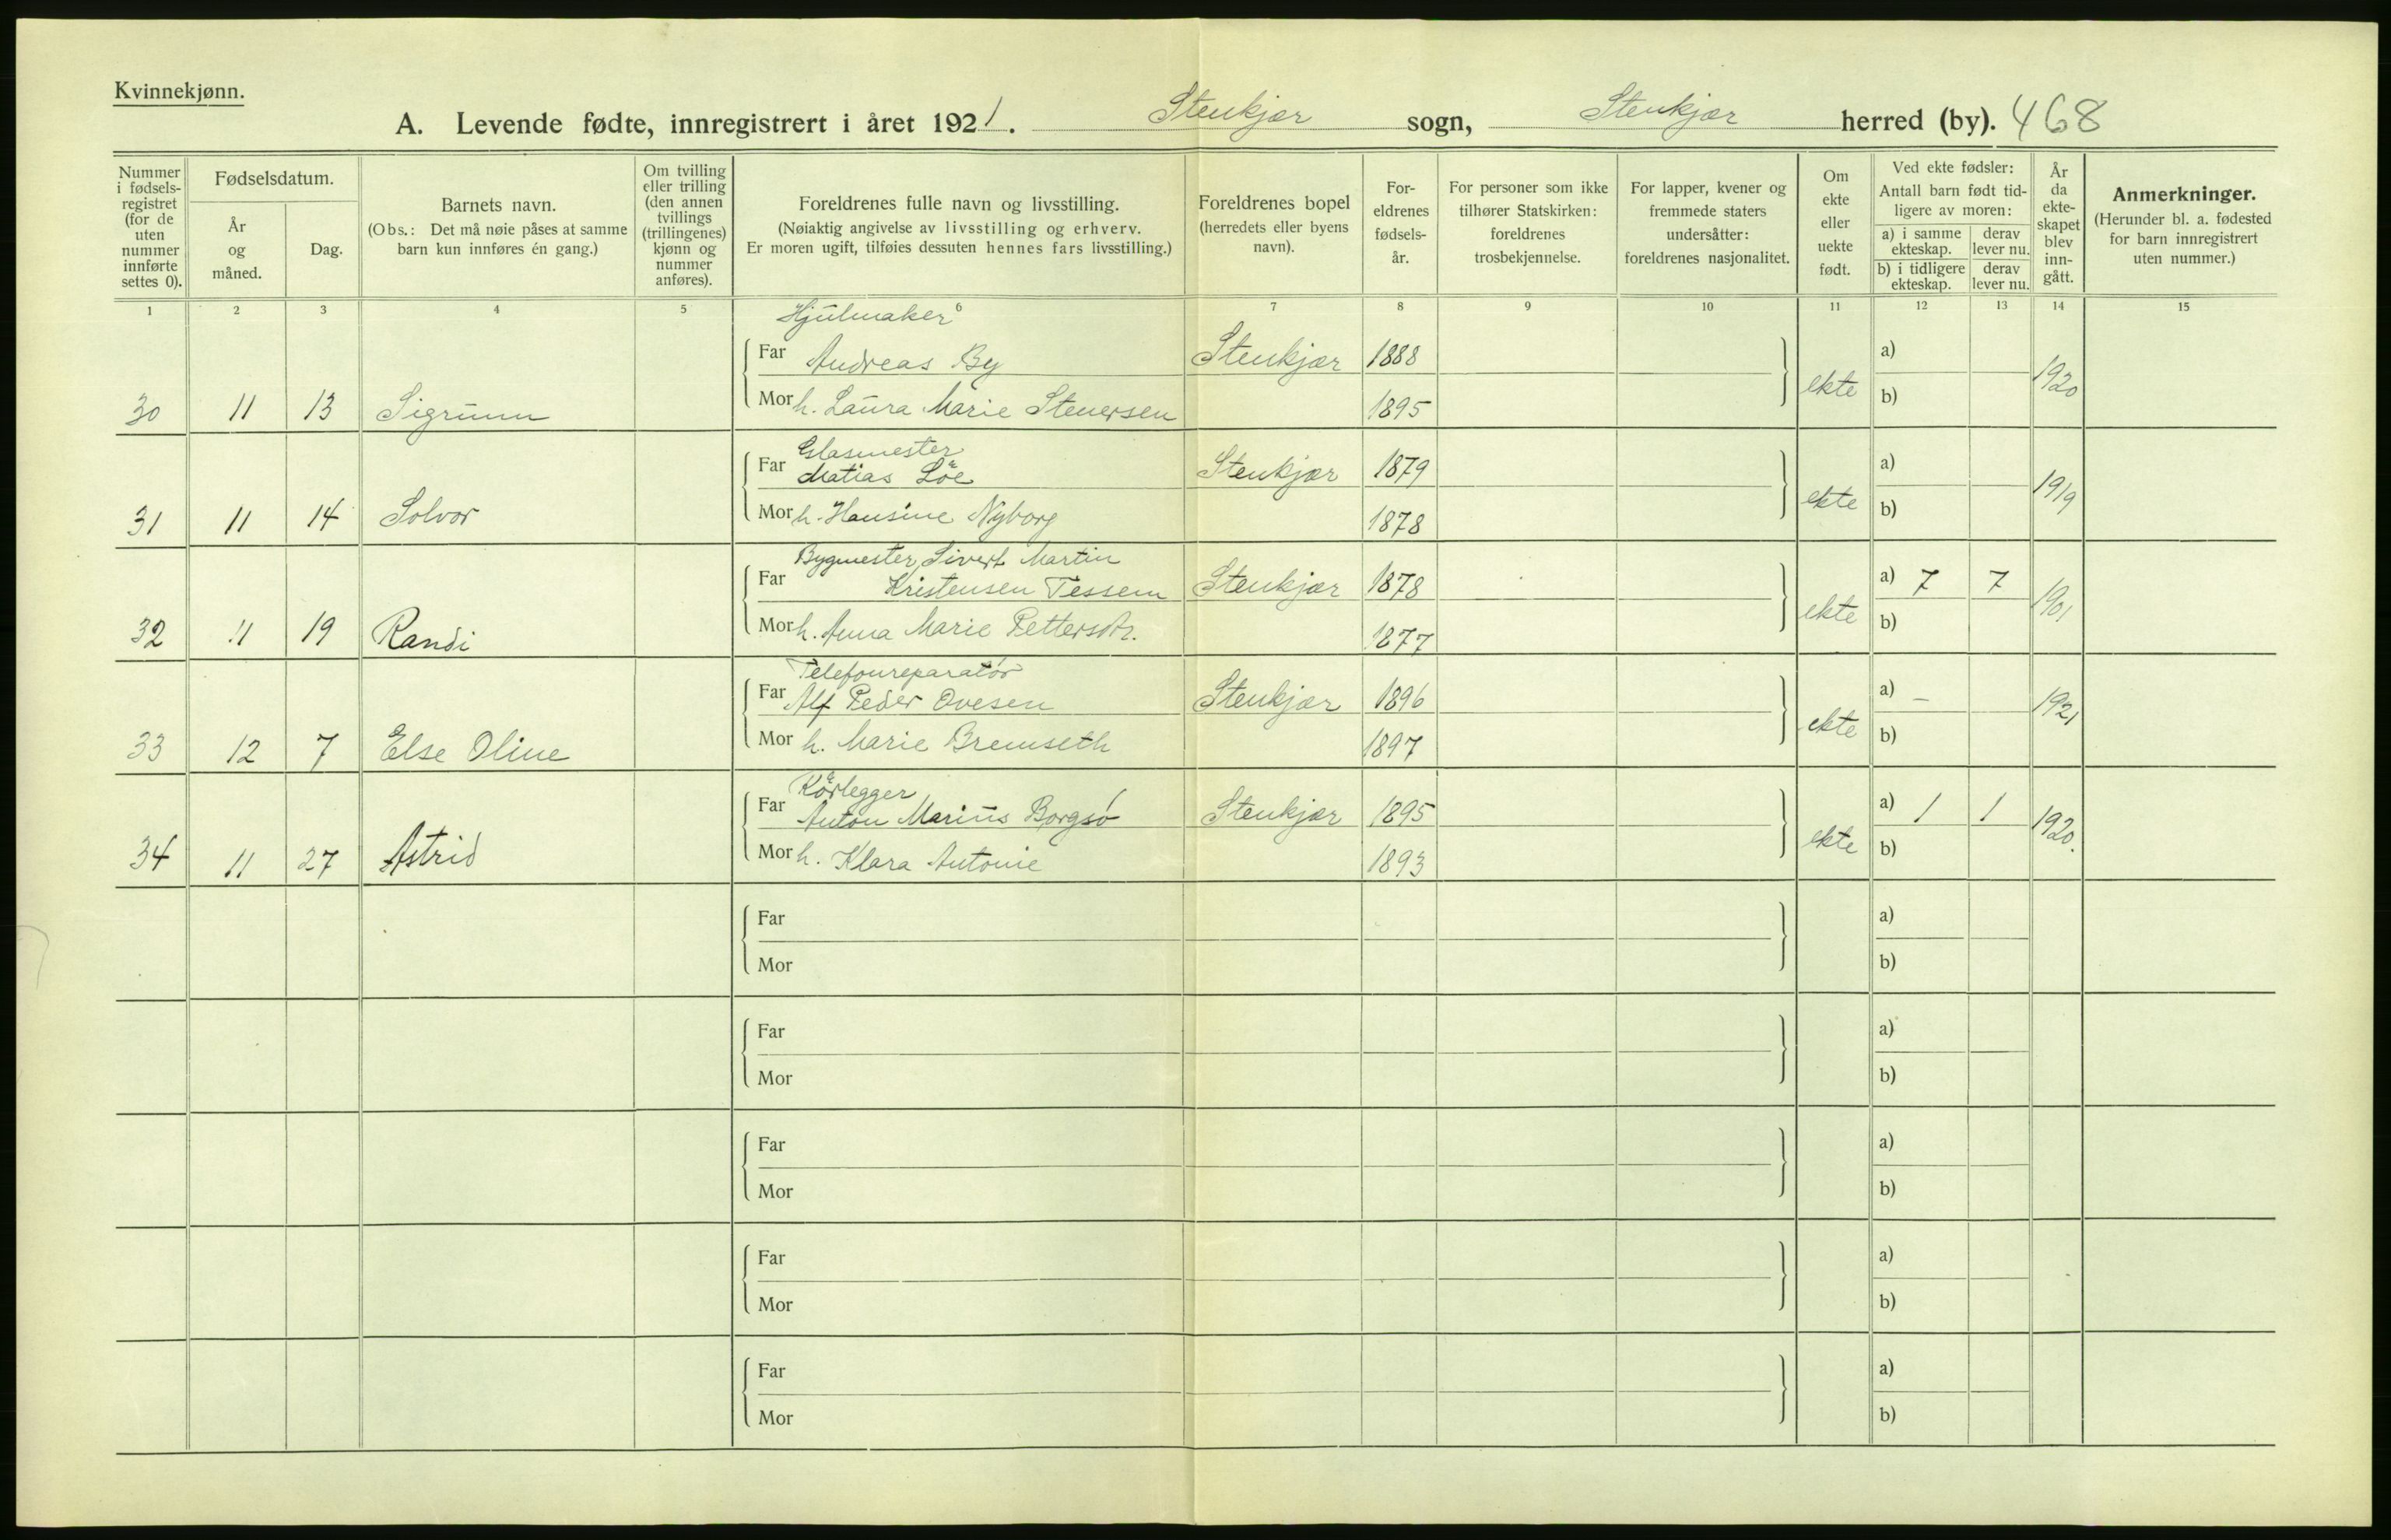 Kvinnekjønn.
A. Levende fødte, innregistrert i året 1921. Stenkjær sogn, Stenkjær herred (by). 468
Nummer i fødsels-registret (for de uten nummer innførte settes 0).
Fødselsdatum.
År og måned.
Dag.
Barnets navn.
(Obs.: Det må nøie påses at samme barn kun innføres én gang.)
Om tvilling eller trilling (den annen tvillings (trillingenes) kjønn og nummer anføres).
Foreldrenes fulle navn og livsstilling.
(Nøiaktig angivelse av livsstilling og erhverv.
Er moren ugift, tilføies dessuten hennes fars livsstilling.)
Foreldrenes bopel
(herredets eller byens navn).
For-eldrenes fødsels-år.
For personer som ikke tilhører Statskirken: foreldrenes trosbekjennelse.
For lapper, kvener og fremmede staters undersåtter: foreldrenes nasjonalitet.
Om ekte eller uekte født.
Ved ekte fødsler:
Antall barn født tid-ligere av moren:
a) i samme ekteskap. derav lever nu.
b) i tidligere ekteskap. derav lever nu.
År da ekte-skapet blev inn-gått.
Anmerkninger.
(Herunder bl. a. fødested for barn innregistrert uten nummer.)
1 2 3 4 5 6 7 8 9 10 11 12 13 14 15
Hjulmaker
Far Andreas By Stenkjær 1888 a)
30 11 13 Sigrunn Mor h. Laura Marie Stenersen 1895 ekte b) 1920
Glasmester
Far Matias Löe Stenkjær 1879 a)
31 11 14 Solvor Mor h. Hansine Nyborg 1878 ekte b) 1919
Bygmester Sivert Martin
Far Kristensen Tessem Stenkjær 1878 a) 7 7
32 11 19 Randi Mor h. Anna Marie Pettersdtr. 1877 ekte b) 1901
Telefonreparatór
Far Alf Peder Ovesen Stenkjær 1896 a) –
33 12 7 Else Oline Mor h. Marie Bremseth 1897 ekte b) 1921
Rörlegger
Far Anton Marius Borgsó Stenkjær 1895 a) 1 1
34 11 27 Astrid Mor h. Klara Antonie 1893 ekte b) 1920.
Far a)
Mor b)
Far a)
Mor b)
Far a)
Mor b)
Far a)
Mor b)
Far a)
Mor b)